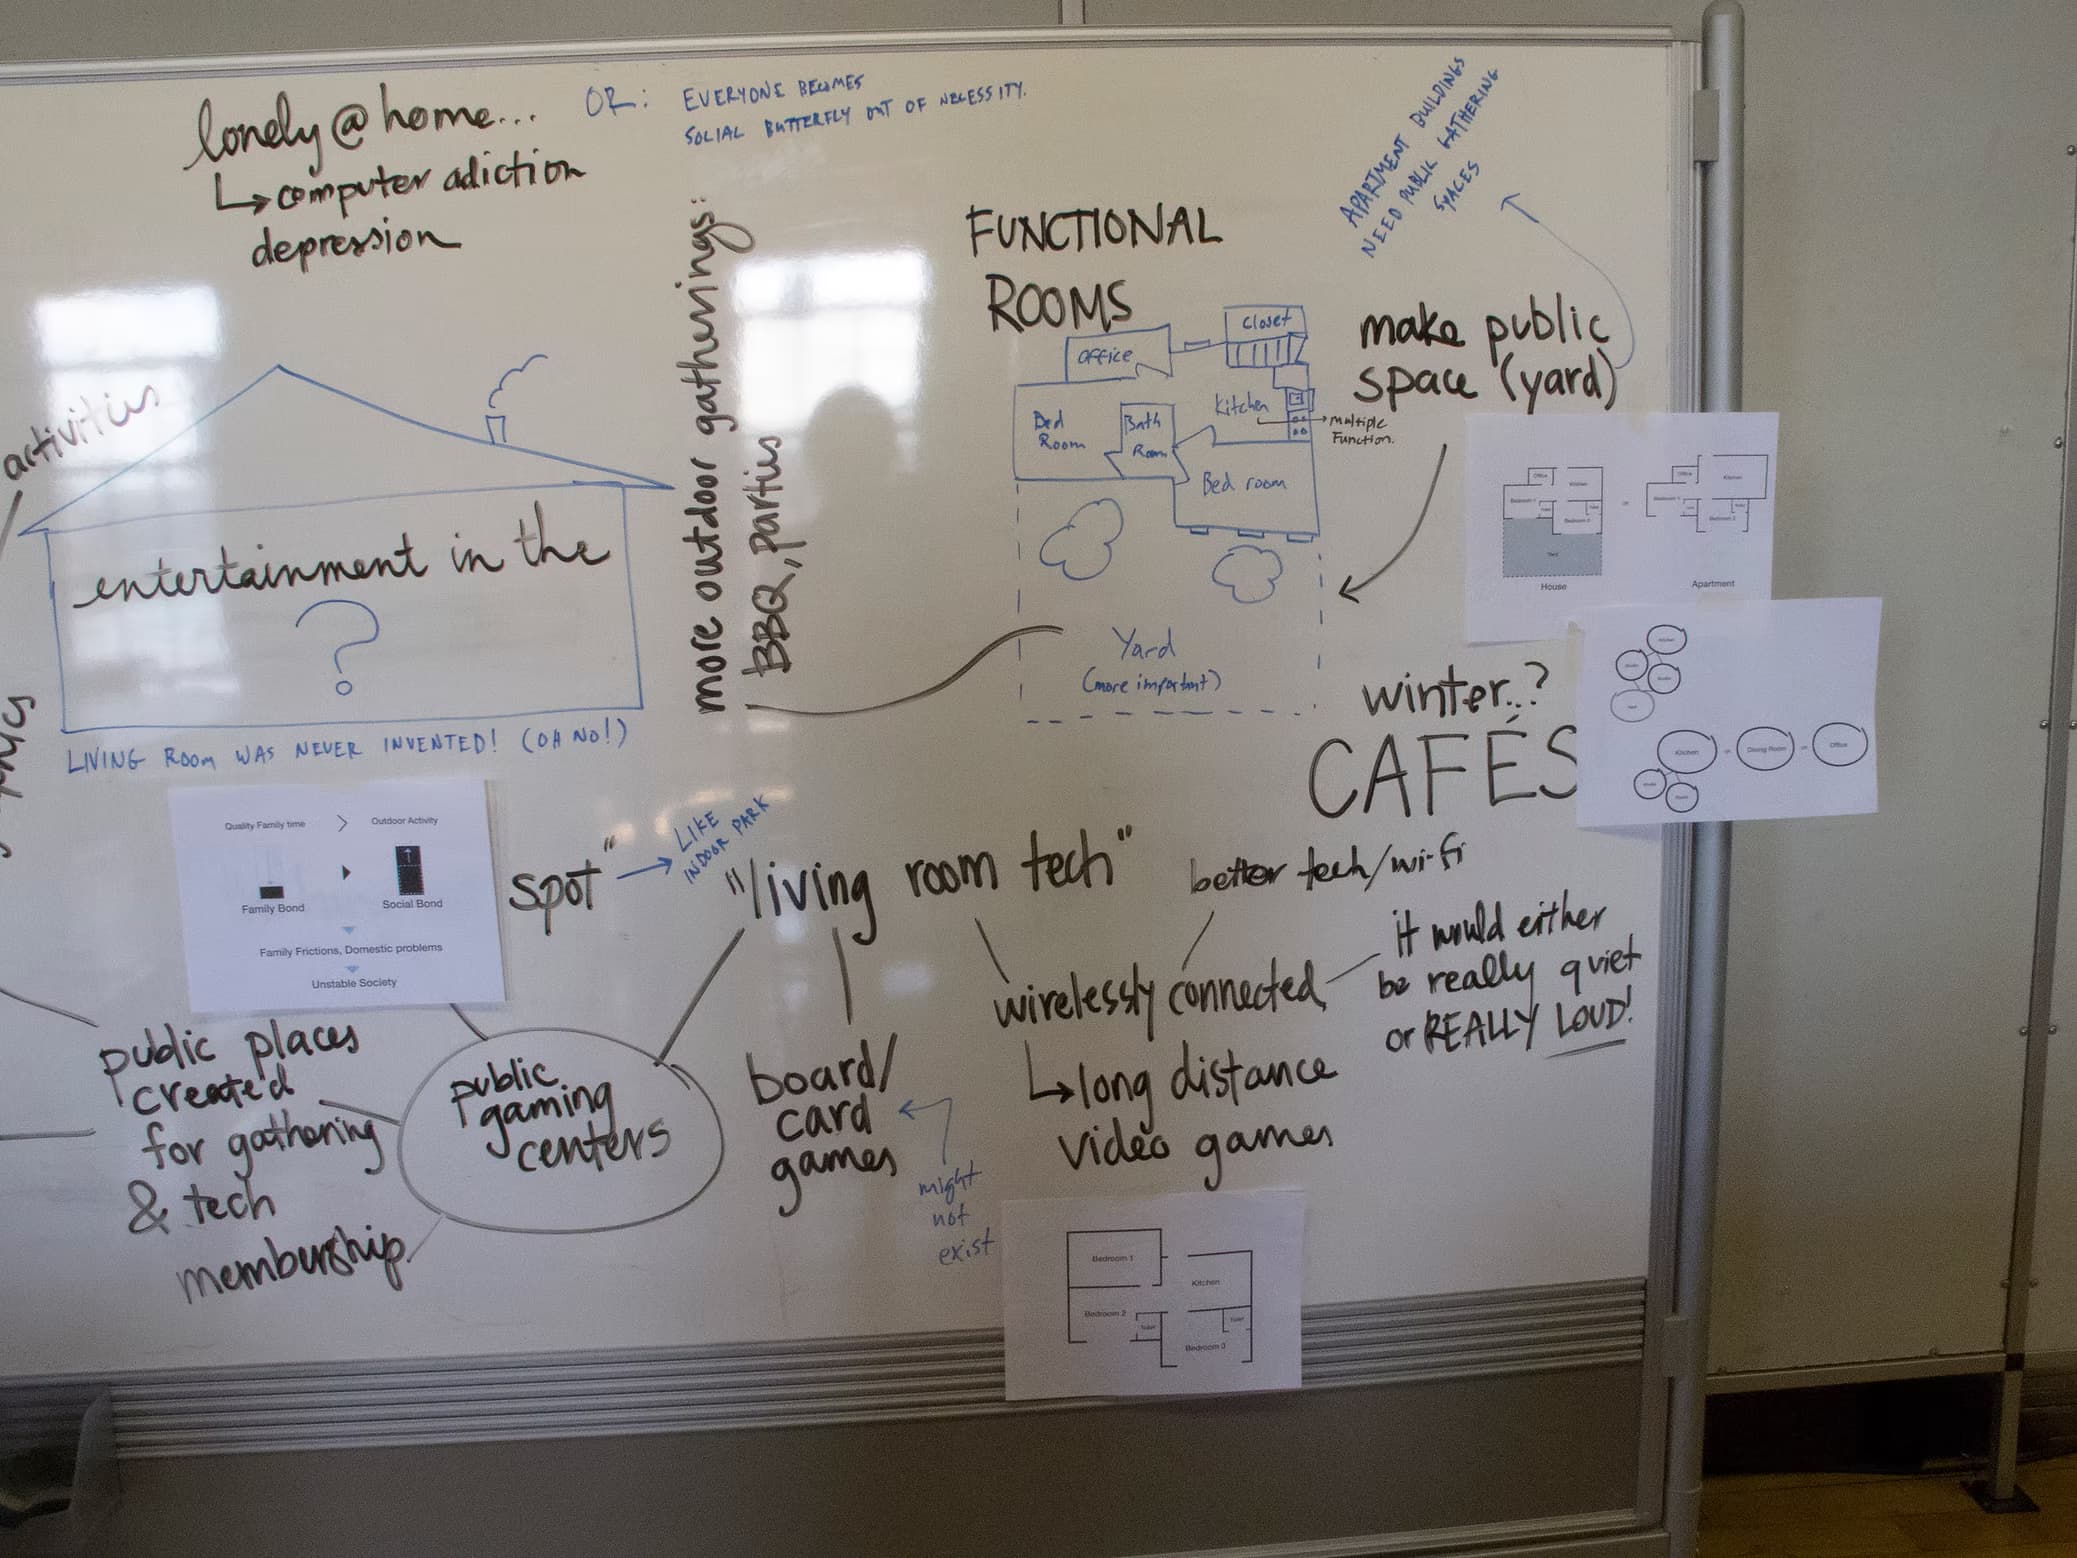 lonely@home...
↳ computer adiction
depression
OR: EVERYONE BECOMES
SOCIAL BUTTERFLY OUT OF NECESSITY.
APARTMENT BUILDINGS
NEED PUBLIC GATHERING
SPACES
activities
entertainment in the
?
LIVING ROOM WAS NEVER INVENTED! (OH NO!)
more outdoor gatherings:
BBQ, parties
FUNCTIONAL
ROOMS
Office
Closet
Bed
Room
Bath
Room
Kitchen
multiple
Function.
Bed room
Yard
(more important)
make public
space (yard)
Office
Kitchen
Bedroom 1
Toilet
Toilet
Bedroom 2
Yard
House
or
Office
Kitchen
Bedroom 1
Toilet
Toilet
Bedroom 2
Apartment
winter..?
CAFÉS
Kitchen
Kitchen
or
Dining Room
or
Office
Quality Family time > Outdoor Activity
Family Bond
Social Bond
Family Frictions, Domestic problems
Unstable Society
spot" → LIKE
INDOOR PARK
"living room tech"
better tech/wi-fi
wirelessly connected
↳ long distance
video games
it would either
be really quiet
or REALLY LOUD!
public places
created
for gathering
& tech
membership
public
gaming
centers
board/
card
games
might
not
exist
Bedroom 1
Kitchen
Bedroom 2
Toilet
Toilet
Bedroom 3